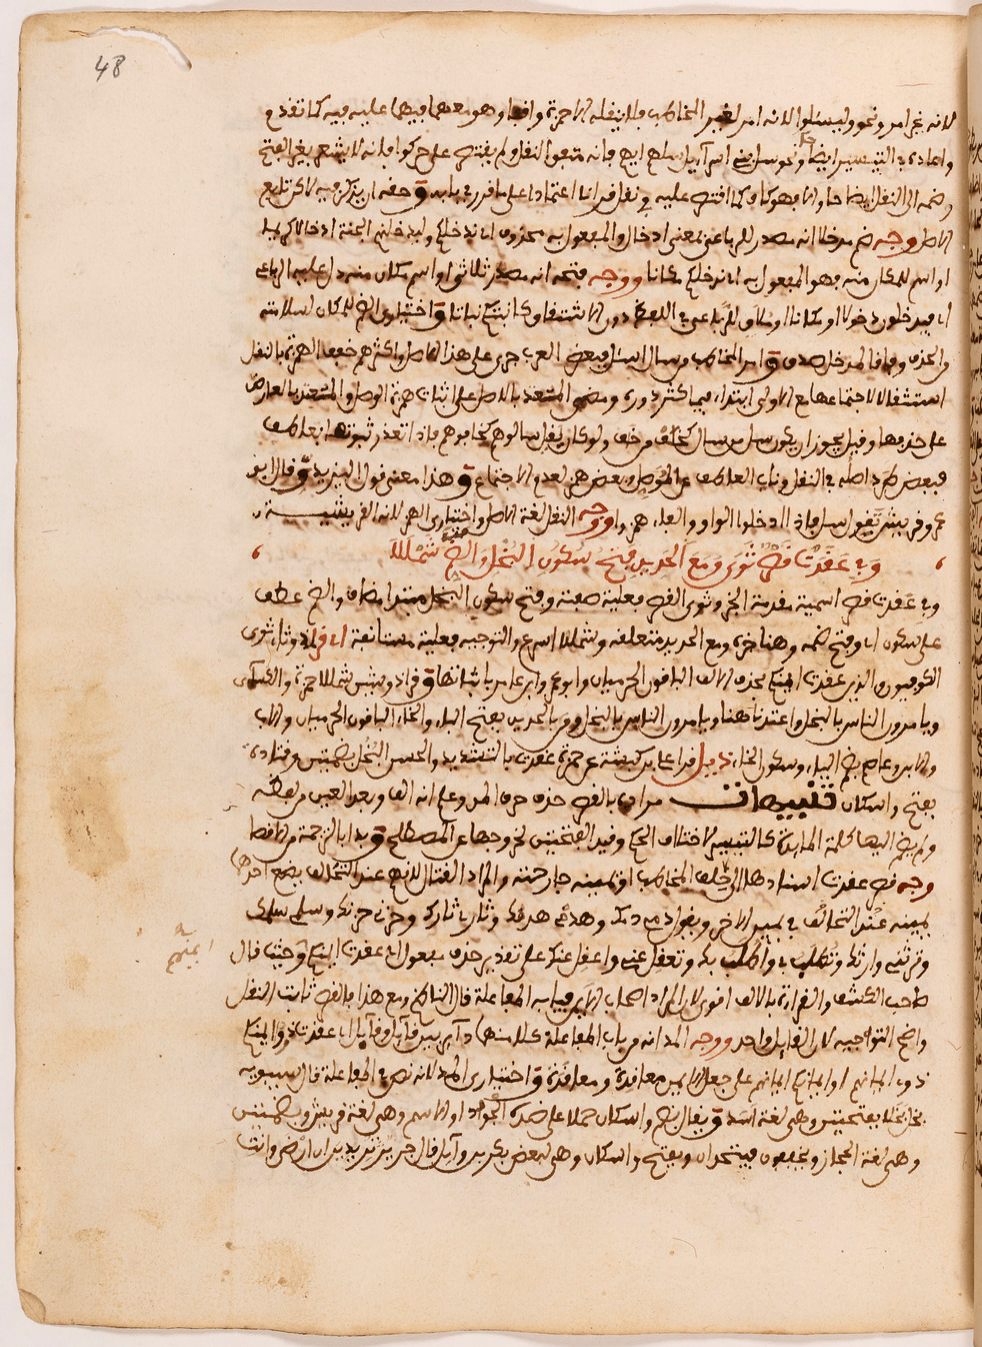 48
لانه غير امر ونحو وليسئلوا لانه امر لغير المخاطب فلا ينقله الا حمزة واقفا وهو معهما فيهما عليه فيه كما تقدم
واعاده في التيسير ايضا ونحو سل بني اسرآءيل سلهم ايهم فانه متبعوا النقل ولم يقتصر على حركوا فلانه لا يشعر بغير الفتح
وضمه الى النقل ايضاحا والا فهو كاف كما اقتصر عليه في نقل قرانا اعتمادا على ما قرر في بابه وحقه ان يذكر فيه لاكن تابع
الاصل وجه ضم مدخلا انه مصدر للرباعي بمعنى ادخال والمفعول به محذوف اي ندخلكم وليدخلنهم الجنة ادخالا كريما
او اسم للمكان منه فهو المفعول به اي ندخلكم مكانا ووجه فتحه انه مصدر ثلاثي او اسم مكان منه دل عليه الرباعي
اي فيدخلون دخولا او مكانا او ملاق للرباعي في اللفظ دون الاشتقاق كانبتكم نباتا واختياري الضم للمكان لسلامته
من الحذف وفاقا لمدخل صدق وامر المخاطب من سال اسئل فبعض العرب جرى على هذا الاصل واكثرهم خفف الهمزة بالنقل
استثقالا لاجتماعهما مع الاولى ابتداء فيما كثر دوره ومضى المعتد بالاصل على اثبات همزة الوصل والمعتد بالعارض
على حذفها وقيل يجوز ان يكون سل من سال كخاف وخف ولو كان لقيل سالوهم كخافوهم فاذا تعذر ثبوتها بعاطف
فبعض طرد اصله في النقل وناب العاطف عن الموصل وبعض همز لعدم الاجتماع وهذا معنى قول اليزيدي وقال ابو
عمرو قريش تقول سل فاذا ادخلوا الواو والفاء همزوا ووجه النقل لغة الاصل واختياري الهمز لانه القريشية
وفي عقدت قصر ثوى ومع الحديد فتح سكون البخل والضم شمللا
وفي عقدت قصر اسمية مقدمة الخبر وثوى القصر فعلية صفته وفتح سكون البخل مبتدا مضاف والضم عطف
على سكون اي وفتح ضمه وهنا خبره ومع الحديد متعلقه وشمللا اسرع والتوجيه فعلية مستانفة اي قرا ذو ثاء ثوى
الكوفيون والذين عقدت ايمنكم بحذف الالف الباقون الحرميان وابو عمرو وابن عامر باثباتها وقرا ذو شين شمللا حمزة والكسآئي
ويامرون الناس بالبخل واعتدنا هنا ويامرون الناس بالبخل ومن بالحديد بفتح الباء والخاء الباقون الحرميان والاب
والابن وعاصم بضم الباء وسكون الخاء ذييل قرا علي بن كبشة عن حمزة عقدت بالتشديد والحسن البخل بضمتين وقتادة
بفتح واسكان تنبيهات مراده بالقصر حذف حرف المد وعلم انه الف وبعد العين من لفظه
ولم يضم اليها كلمة المايدة كالتيسير لاختلاف الحكم وقيد الفتحتين لخروجهما عن المصطلح وبدا بالترجمة من الاقصا
وجه قصر عقدت اسنادها الى حلف المخاطب او يمينه جارحته والمراد القتال لانهم عند التحالف يضع احدهما
يمينه عند التحالف في يمين الاخر ويقول دمي دمك وهدمي هدمك وثاري ثارك وحربي حربك وسلمي سلمك
وترثني وارثك وتطلب بي واطلب بك وتعقل عني واعقل عنك على تقدير حذف مفعول اي عقدت ايمنكم وحيث قال
صاحب الكشف والقراءة بالالف اقوى لان المراد اصحاب الايمن فبابه المفاعلة قال الناظم ومع هذا بالقصر ثابت النقل
واضح التوجيه لان القايل واحد ووجه المد انه من باب المفاعلة كل منهما دآير بين قآيل وقآيل اي عقدت ذوو ايمنكم
ذوي ايمانهم او ايمانكم ايمانهم على جعل الايمن معاقدة ومعاقدة واختياري المد لانه نص في المفاعلة قال سيبويه
بخل بخلا بفتحتين وهي لغة اسد ويقال بضم واسكان حملا على ضده الجود او الاسم وهي لغة قريش وبضمتين
وهي لغة الحجاز ويخففون فيتحدان وبفتح واسكان وهي لبعض بكر بن وآيل قال جرير تريدين ان ارضى وانت
ايمنكم